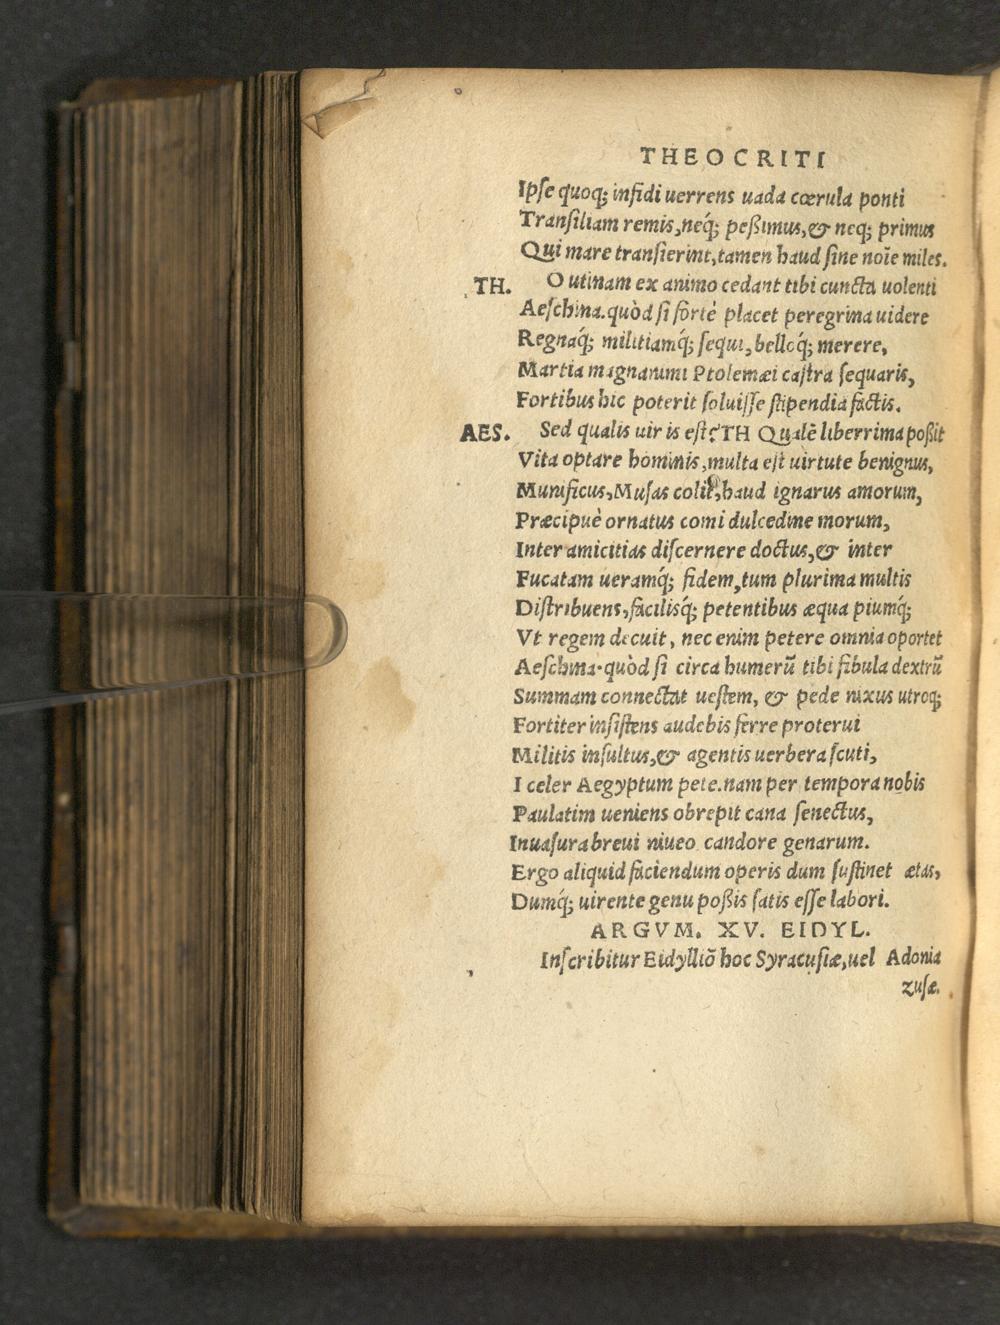 THEOCRITI
Ipſe quoq; infidi uerrens uada cœrula ponti
Tranſiliam remis, neq́; peßimus, & neq; primus
Qui mare tranſierint, tamen haud ſine noīe miles.
TH. O utinam ex animo cedant tibi cuncta uolenti
Aeſchina. quòd ſi fortè placet peregrina uidere
Regnaq́; militiamq́; ſequi, belloq́; merere,
Martia magnanimi Ptolemæi caſtra ſequaris,
Fortibus hic poterit ſoluiſſe ſtipendia factis.
AES. Sed qualis uir is eſt? TH Qualē liberrima poßit
Vita optare hominis, multa eſt uirtute benignus,
Munificus, Muſas colit, haud ignarus amorum,
Præcipuè ornatus comi dulcedine morum,
Inter amicitias diſcernere doctus, & inter
Fucatam ueramq́; fidem, tum plurima multis
Diſtribuens, facilisq́; petentibus æqua piumq́;
Vt regem decuit, nec enim petere omnia oportet
Aeſchina. quòd ſi circa humerū tibi fibula dextrū
Summam connectat ueſtem, & pede nixus utroq;
Fortiter inſiſtens audebis ferre proterui
Militis inſultus, & agentis uerbera ſcuti,
I celer Aegyptum pete. nam per tempora nobis
Paulatim ueniens obrepit cana ſenectus,
Inuaſura breui niueo candore genarum.
Ergo aliquid faciendum operis dum ſuſtinet ætas,
Dumq́; uirente genu poßis ſatis eſſe labori.
ARGVM. XV. EIDYL.
Inſcribitur Eidylliō hoc Syracuſiæ, uel Adonia
zuſæ.